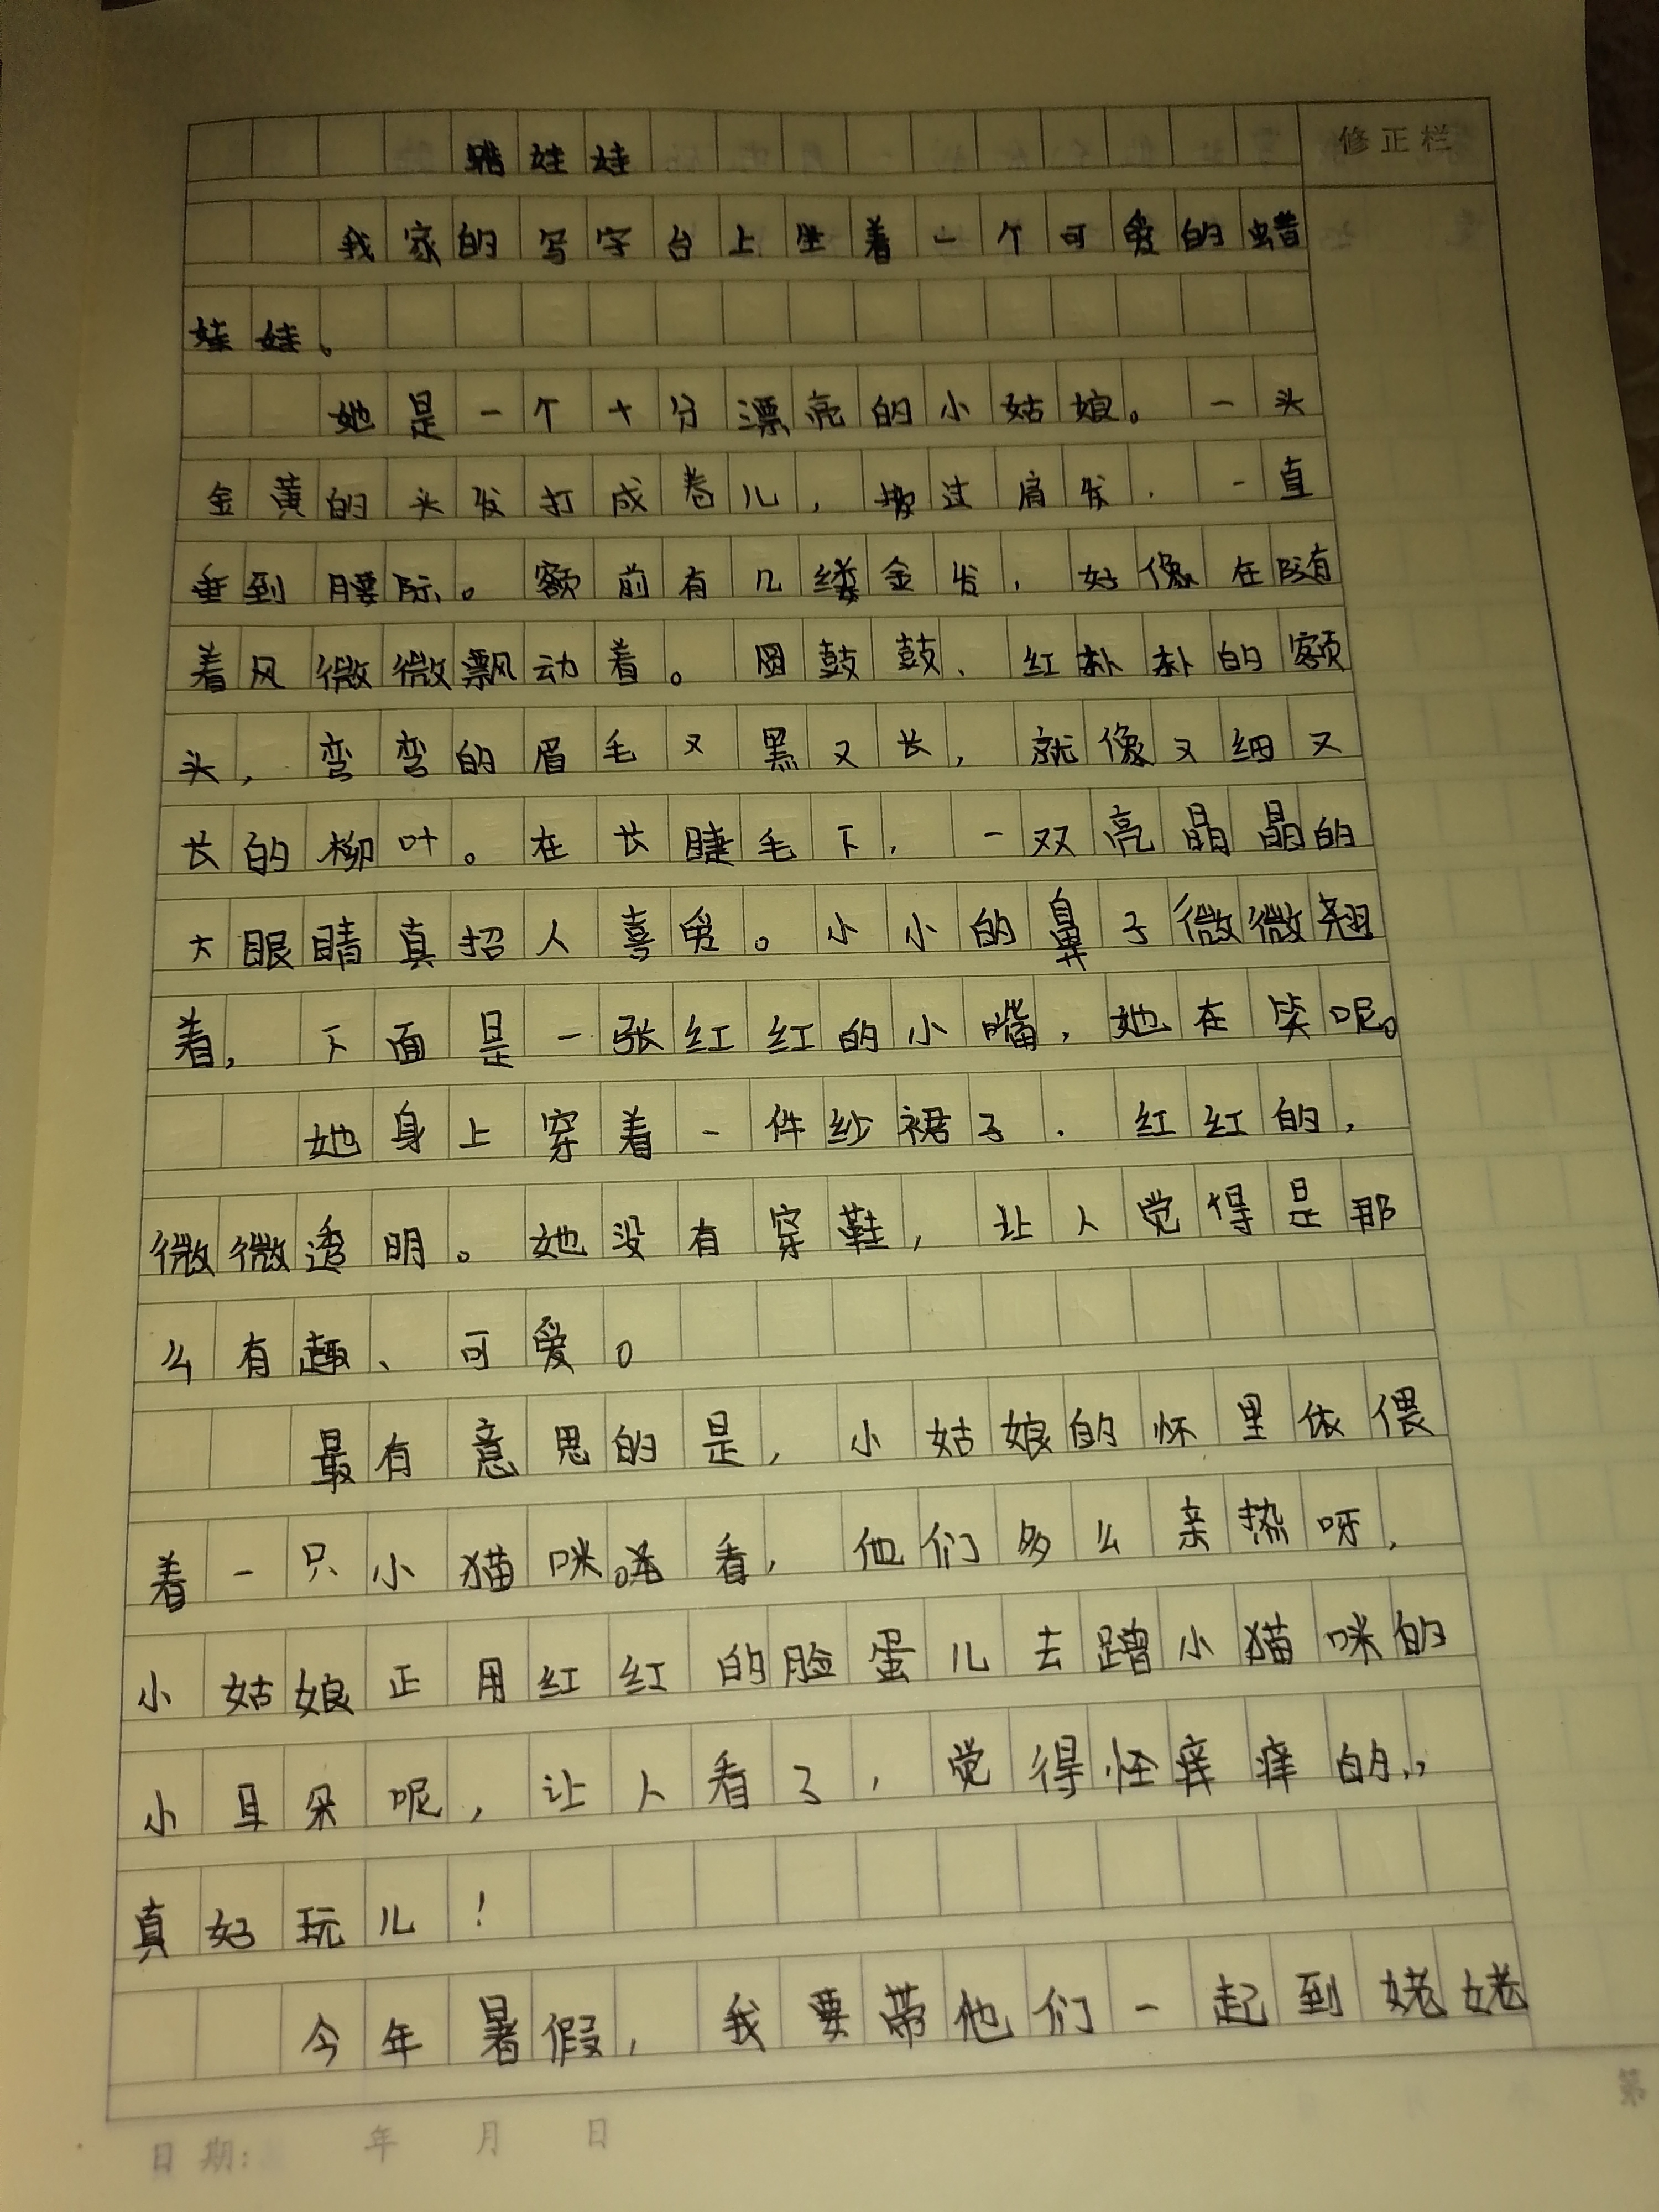 蜡娃娃
修正栏
我家的写字台上坐着一个可爱的蜡
娃娃。
她是一个十分漂亮的小姑娘。一头
金黄的头发打成卷儿，披过肩发，一直
垂到腰际。额前有几缕金发，好像在随
着风微微飘动着。圆鼓鼓、红朴朴的额
头，弯弯的眉毛又黑又长，就像又细又
长的柳叶。在长睫毛下，一双亮晶晶的
大眼睛真招人喜爱。小小的鼻子微微翘
着，下面是一张红红的小嘴，她在笑呢。
她身上穿着一件纱裙子，红红的，
微微透明。她没有穿鞋，让人觉得是那
么有趣、可爱。
最有意思的是，小姑娘的怀里依偎
着一只小猫咪。看，他们多么亲热呀，
小姑娘正用红红的脸蛋儿去蹭小猫咪的
小耳朵呢，让人看了，觉得怪痒痒的，
真好玩儿！
今年暑假，我要带他们一起到姥姥
日期: 年 月 日
第